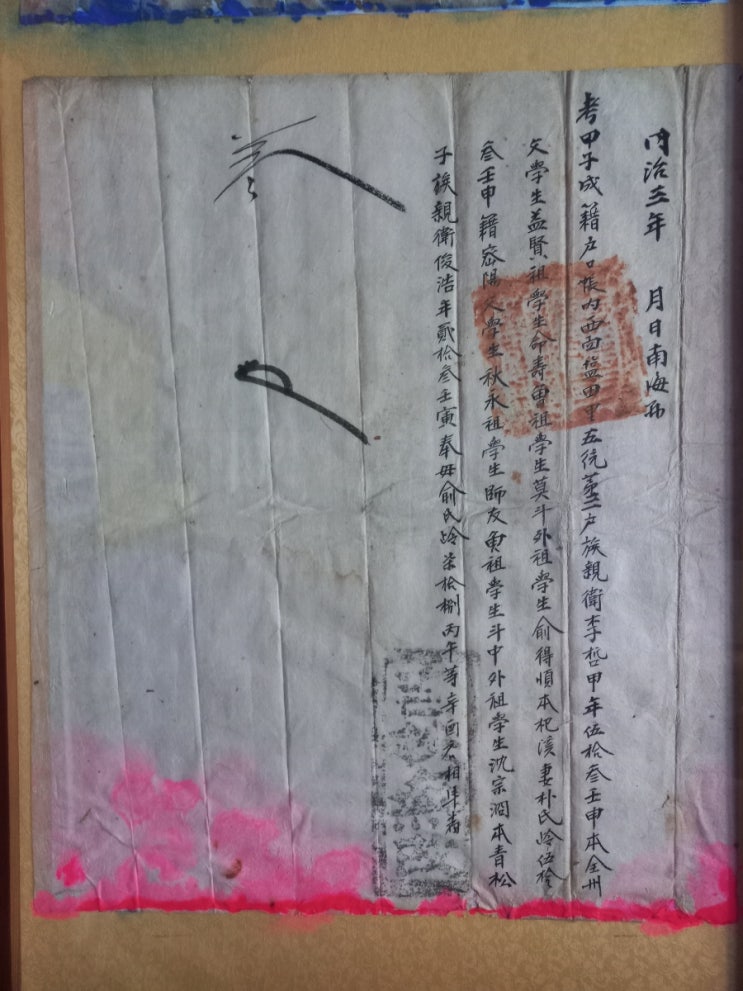 同治三年 月 日南海縣
考甲子成籍戶口帳內西面塩田里五統第二戶族親衛李哲甲年伍拾叁壬申本全州
父學生益賢祖學生命壽曾祖學生莫斗外祖學生俞得順本杞溪妻朴氏齡伍拾
叁壬申籍密陽父學生秋永祖學生師友曾祖學生斗中外祖學生沈宗潤本青松
子族親衛俊浩年貳拾叁壬寅奉母俞氏齡柒拾捌丙午等辛酉戶口相準者